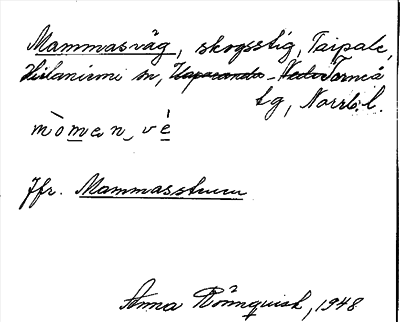 Mammasväg, skogsstig, Taipale,
Hietaniemi sn, Haparanda - Neder Torneå
tg, Norrb. l.
mòmen vé
Jfr. Mammasstuum
Anna Rönnquist, 1948